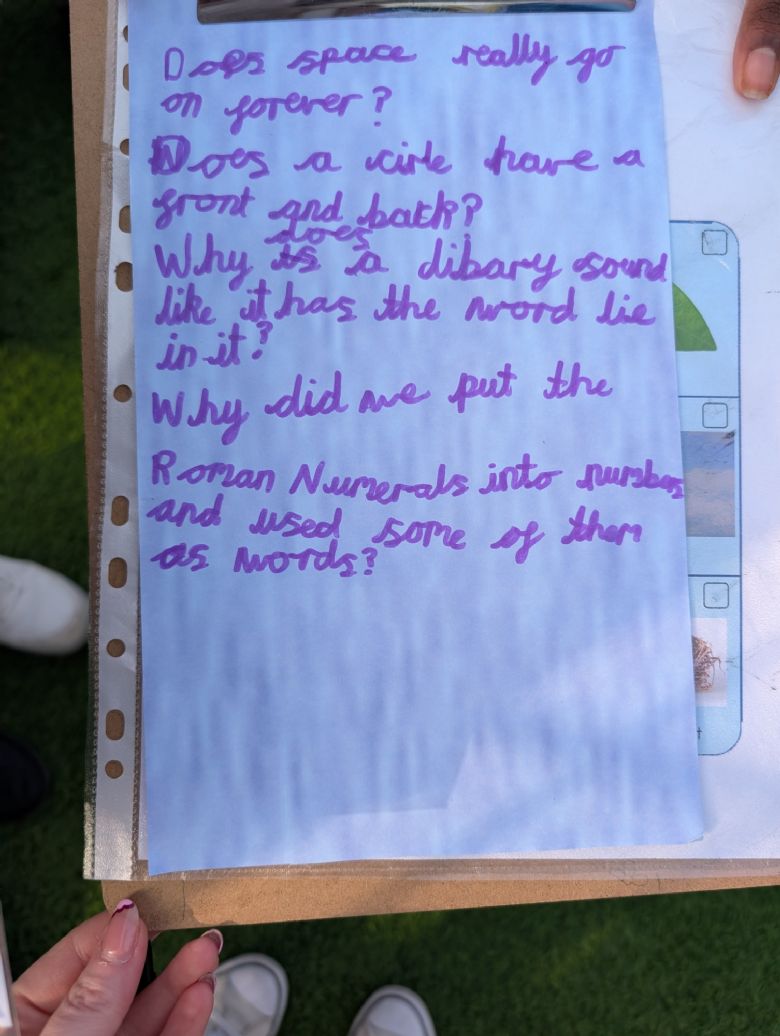 Does space really go
on forever?
Does a cirle have a
front and back?
does
Why is a dibary sound
like it has the word lie
in it?
Why did we put the
Roman Numerals into numbers
and used some of them
as words?